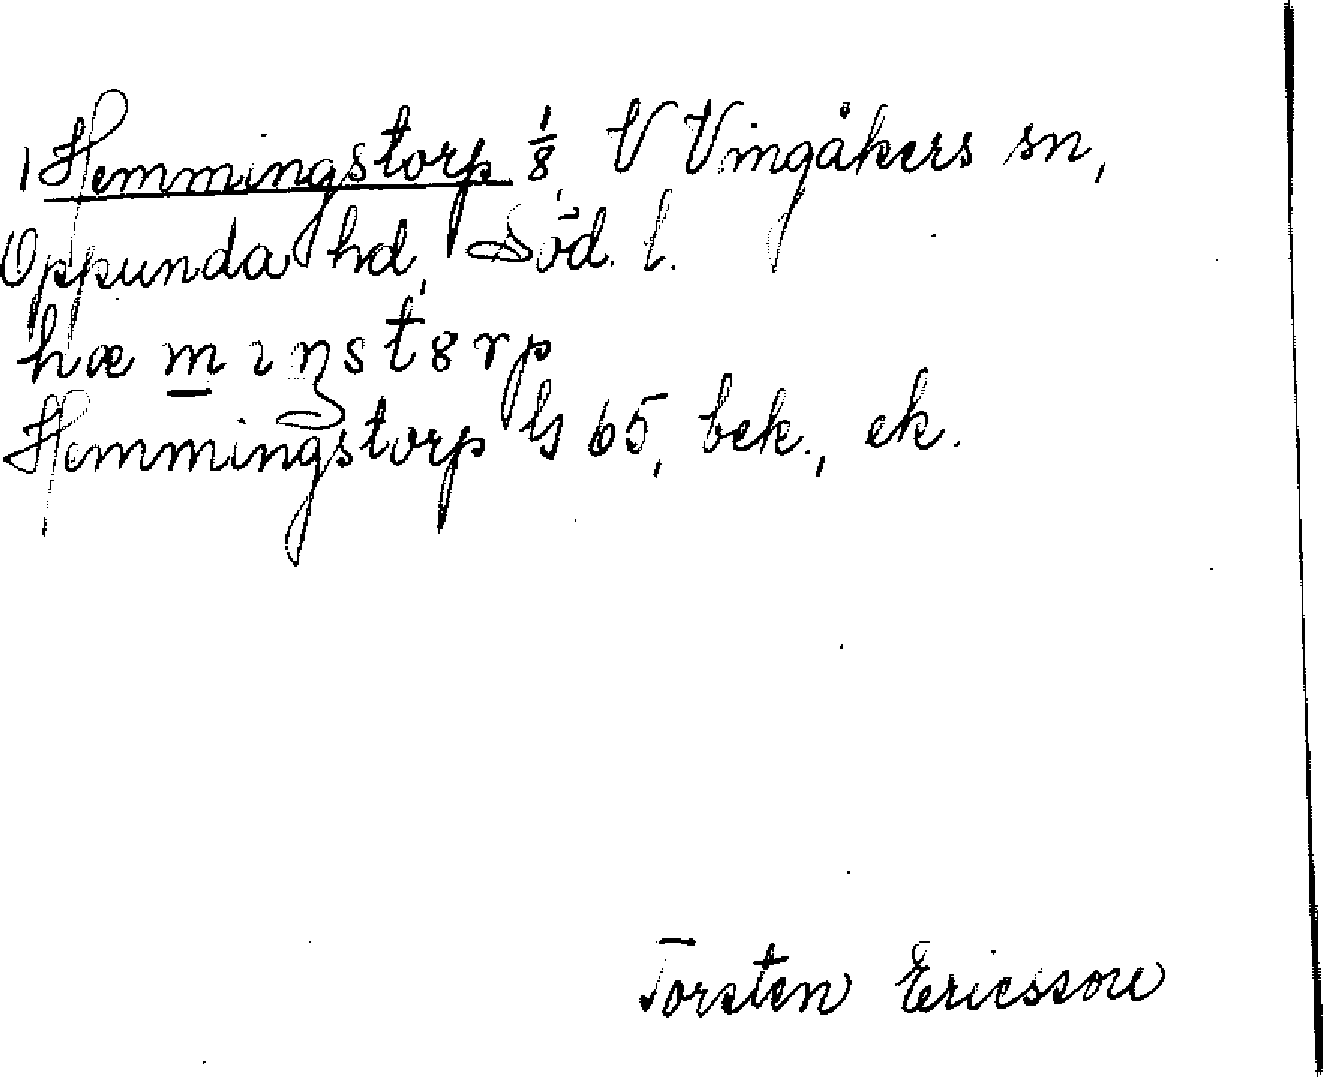 1 Hemmingstorp 1/8, V Vingåkers sn,
Oppunda hd, Söd. l.
hæmıŋst8rp
Hemmingstorp GS 65, bek., ek.
Torsten Ericsson